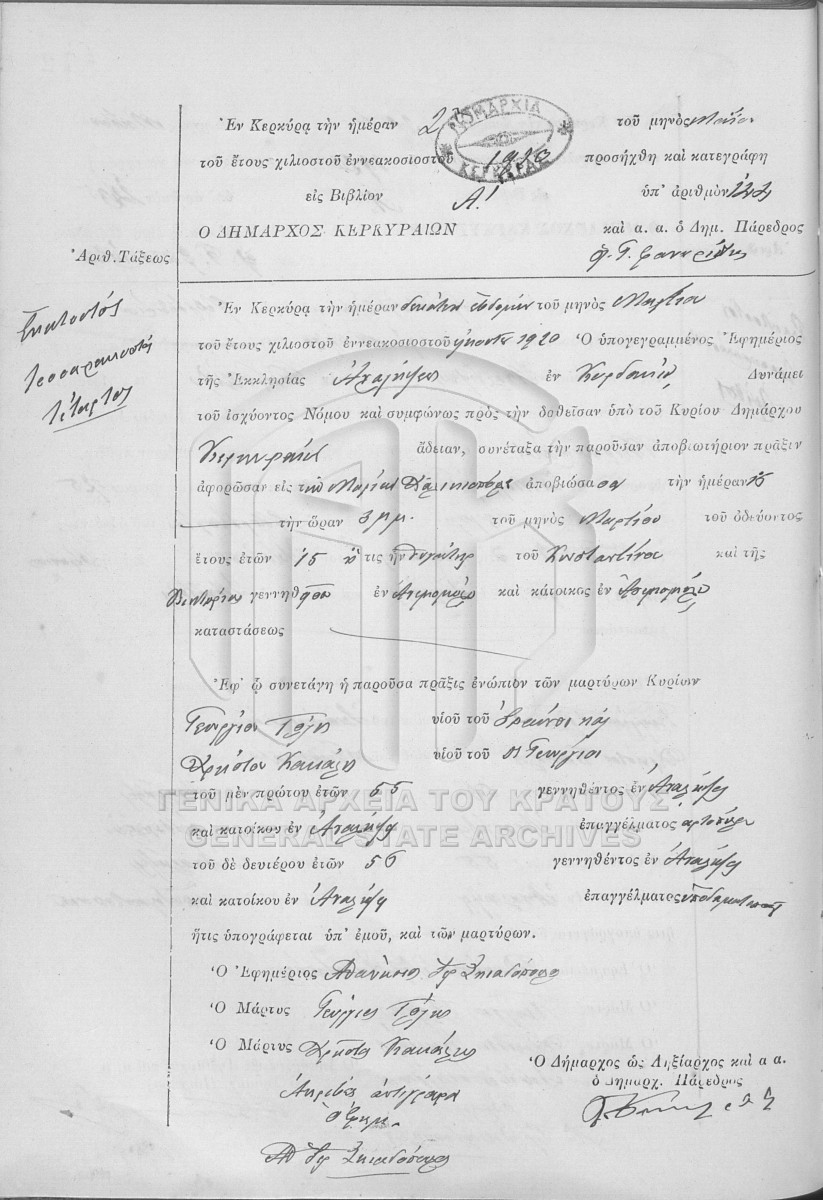 Ἐν Κερκύρᾳ τὴν ἡμέραν 2 τοῦ μηνὸς
ΝΟΜΑΡΧΙΑ ΚΕΡΚΥΡΑΣ
τοῦ ἔτους χιλιοστοῦ ἐννεακοσιοστοῦ 1920 προσήχθη καὶ κατεγράφη
εἰς Βιβλίον Α! ὑπ' ἀριθμὸν
Ο ΔΗΜΑΡΧΟΣ ΚΕΡΚΥΡΑΙΩΝ καὶ α. α. ὁ Δημ. Πάρεδρος
Ἀριθ. Τάξεως
Ἑκατοστός
τεσσαρακοστός
τέταρτος
Ἐν Κερκύρᾳ τὴν ἡμέραν δεκάτην ἑβδόμην τοῦ μηνὸς Μαρτίου
τοῦ ἔτους χιλιοστοῦ ἐννεακοσιοστοῦ εἰκοστοῦ 1920 Ὁ ὑπογεγραμμένος Ἐφημέριος
τῆς Ἐκκλησίας Ἀναλήψεως ἐν Δυνάμει
τοῦ ἰσχύοντος Νόμου καὶ συμφώνως πρὸς τὴν δοθεῖσαν ὑπὸ τοῦ Κυρίου Δημάρχου
Κερκυραίων ἄδειαν, συνέταξα τὴν παροῦσαν ἀποβιωτήριον πρᾶξιν
ἀφορῶσαν εἰς τὴν ἀποβιώσασαν τὴν ἡμέραν 15
τὴν ὥραν 3 μ.μ. τοῦ μηνὸς Μαρτίου τοῦ ὁδεύοντος
ἔτους ἐτῶν 15 ἥτις ἦν θυγάτηρ τοῦ Κωσταντίνου καὶ τῆς
γεννηθεῖσα ἐν καὶ κάτοικος ἐν
καταστάσεως
Ἐφ' ᾧ συνετάγη ἡ παροῦσα πρᾶξις ἐνώπιον τῶν μαρτύρων Κυρίων
Γεωργίου υἱοῦ τοῦ
Χρήστου υἱοῦ τοῦ Γεωργίου
τοῦ μὲν πρώτου ἐτῶν 55 γεννηθέντος ἐν Ἀναλήψει
ΓΕΝΙΚΑ ΑΡΧΕΙΑ ΤΟΥ ΚΡΑΤΟΥΣ
καὶ κατοίκου ἐν Ἀναλήψει ἐπαγγέλματος ἀρτοπώλου
GENERAL STATE ARCHIVES
τοῦ δὲ δευτέρου ἐτῶν 56 γεννηθέντος ἐν Ἀναλήψει
καὶ κατοίκου ἐν Ἀναλήψει ἐπαγγέλματος ὑποδηματοποιοῦ
ἥτις ὑπογράφεται ὑπ' ἐμοῦ, καὶ τῶν μαρτύρων.
Ὁ Ἐφημέριος Ἀθανάσιος
Ὁ Μάρτυς Γεώργιος
Ὁ Μάρτυς Χρῆστος
Ὁ Δήμαρχος ὡς Ληξίαρχος καὶ α α.
ὁ Δημαρχ. Πάρεδρος
Ἀκριβὲς ἀντίγραφον
ὁ Ἐφημ.